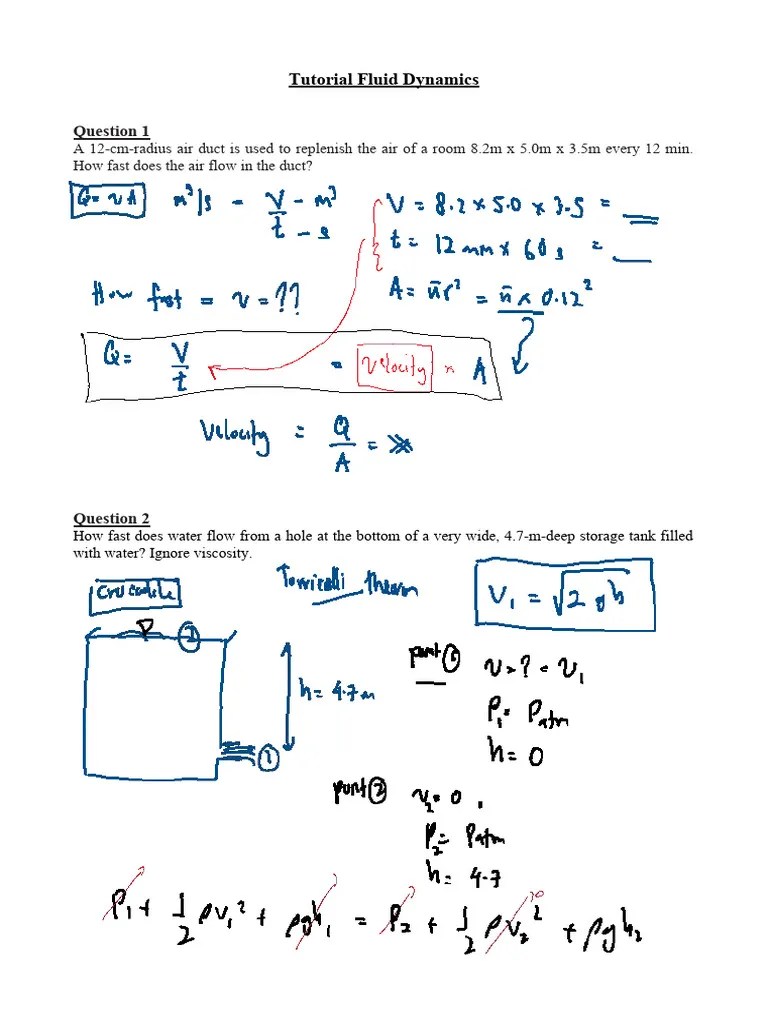 Tutorial Fluid Dynamics
Question 1
A 12-cm-radius air duct is used to replenish the air of a room 8.2m x 5.0m x 3.5m every 12 min.
How fast does the air flow in the duct?
Q = vA
m³/s = V - m³
t - s
V = 8.2 x 5.0 x 3.5 =
t = 12 min x 60 s =
A = π r² = π x 0.12²
How fast = v = ??
Q = V/t = velocity x A
Velocity = Q/A =
Question 2
How fast does water flow from a hole at the bottom of a very wide, 4.7-m-deep storage tank filled
with water? Ignore viscosity.
Torricelli theorm
V₁ = √2gh
2
h = 4.7 m
1
point 1
v = ? = v₁
P₁ = Patm
h = 0
point 2
v₂ = 0
P₂ = Patm
h = 4.7
P₁ + 1/2 ρv₁² + ρgh₁ = P₂ + 1/2 ρv₂² + ρgh₂